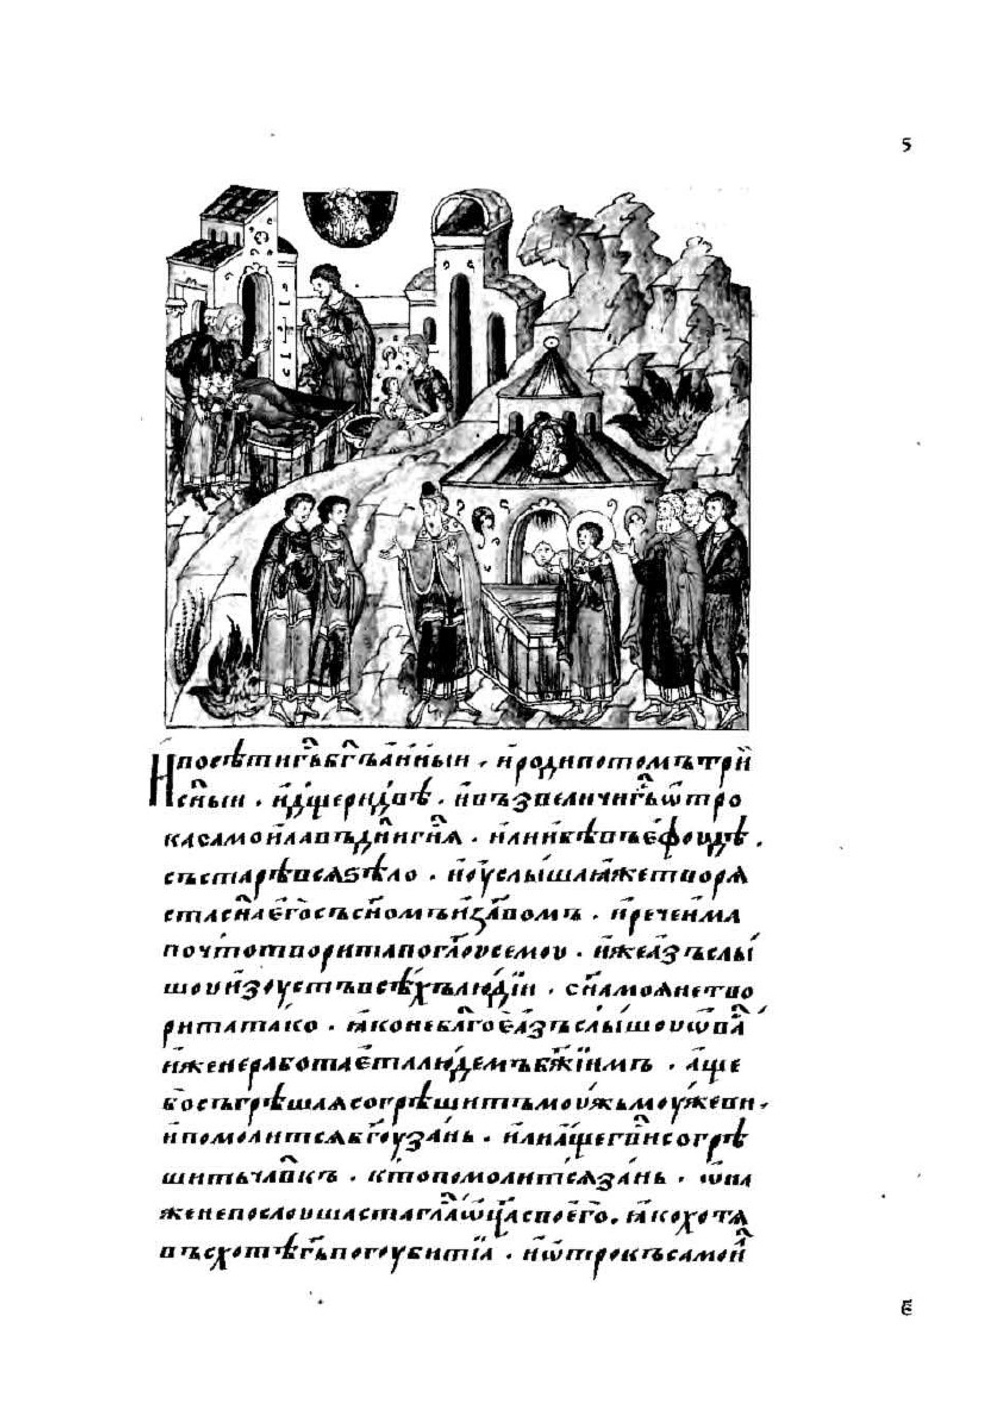 5
И҆посѣтигь҃бг҃ъа҆́нн꙼ꙋын . и҆родипотомътрй
сн҃ыи . и҆д꙼щеридвѣ . и҆възвеличигь҃ѿтро
касамои҆лавъднйгн҃ѧ . и҆лиибѣвъе҆фоудѣ .
състарѣвсѧѕѣло . и҆оу҆слы́шаꙗ҆жетворѧ
стасн҃ае҆го҆съсн҃омъи҆зл҃вомъ . и҆речеи҆ма
почто̀творитапогл҃оусемоу . и҆жеа҆зъслы́
шоуи҆зоустъвсѣхълюді́и . сн҃амоѧнетво
рита́тако . ꙗ҆конебл҃гое҆а҆зъслы́шоуѿва҃
и҆женеработае҆талю́демъбж҃і́имъ . а҆ще
бо̀съгрѣшаꙗсогрѣшитъмоу́жьмоу́жеви ,
и҆помолитсѧбг҃оузань . и҆лиа҆щегв҃исогрѣ
шитьчл҃вкъ . кто̀помолитсѧзань . ѿна
женепослоушастагла҃ѿц҃асвоегѡ̀ . ꙗ҆кохотѧ
въсхотѣгь҃погоубитиꙗ̀ . и҆ѿтрокъсамои҆л
е҃